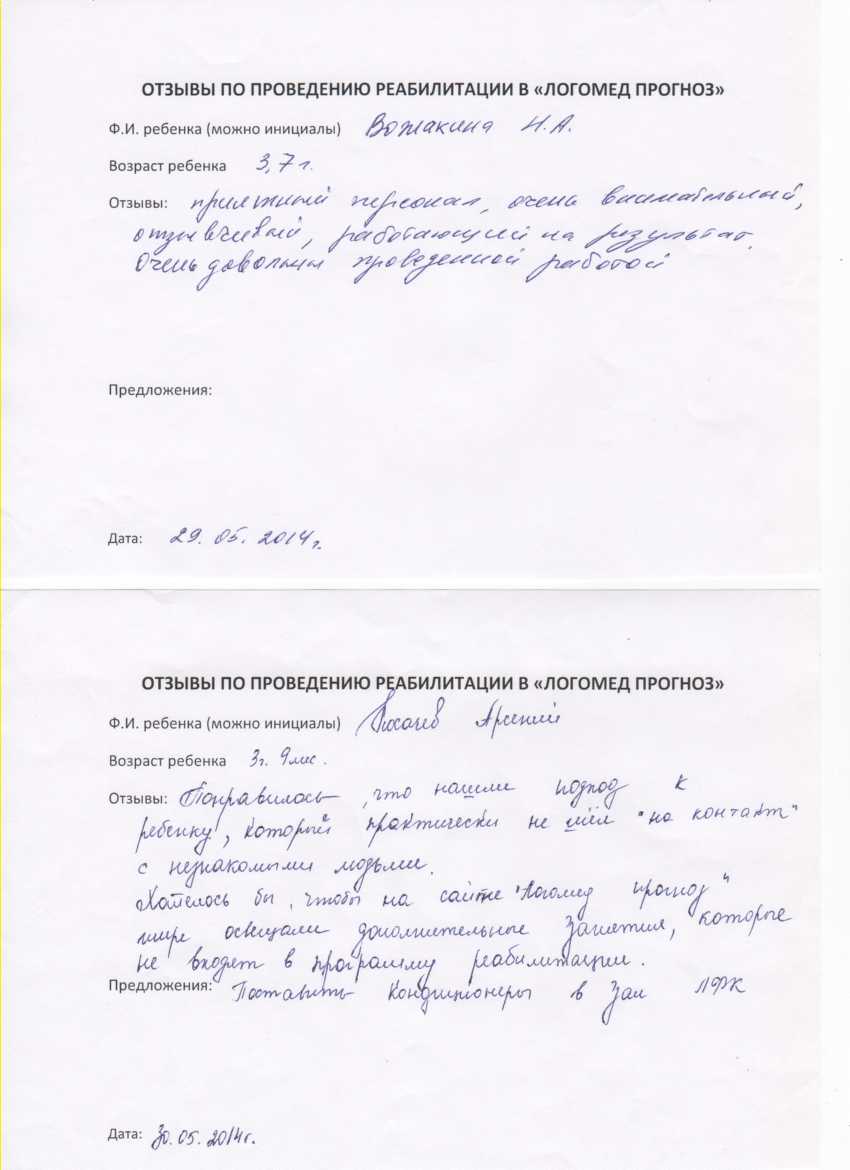 ОТЗЫВЫ ПО ПРОВЕДЕНИЮ РЕАБИЛИТАЦИИ В «ЛОГОМЕД ПРОГНОЗ»
Ф.И. ребенка (можно инициалы) Вожакина Н.А.
Возраст ребенка 3,7 г.
Отзывы: приятный персонал, очень внимательный,
отзывчивый, работающий на результат.
Очень довольны проведенной работой
Предложения:
Дата: 29.05.2014г.
ОТЗЫВЫ ПО ПРОВЕДЕНИЮ РЕАБИЛИТАЦИИ В «ЛОГОМЕД ПРОГНОЗ»
Ф.И. ребенка (можно инициалы) Арсений
Возраст ребенка 3г. 9мес.
Отзывы: Понравилось, что нашли подход к
ребенку, который практически не шёл "на контакт"
с незнакомыми людьми.
Хотелось бы, чтобы на сайте "Логомед прогноз"
шире освещали дополнительные занятия, которые
не входят в программу реабилитации.
Предложения: Поставить кондиционеры в зал ЛФК
Дата: 30.05.2014г.